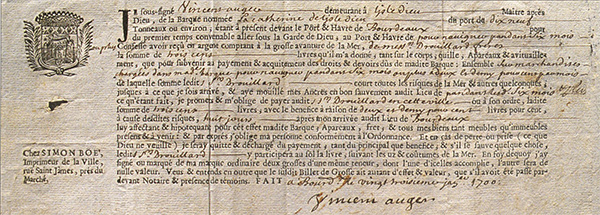 JE sous-signé Vincens augee demeurant à Gole dieu Maître après
Dieu, de la Barque nommée La Catherine de Gole dieu du port de dix neuf
Tonneaux ou environ, étant à présent devant le Port & Havre de Bourdeaux
du premier temps convenable aller sous la Garde de Dieu, au Port & Havre de, pour naviguer pandant six mois
Confesse avoir reçû en argent comptant à la grosse avanture de la Mer, de mess Drouillard freres
la somme de trois cens livres qu'il m'a donné, sur le corps, quille, Apareaux & avituaillement,
que pour subvenir au payement & acquitement des droits & devoirs dûs de madite Barque; Ensemble
chargées dans mad. barque pour naviguer pandant six mois
de laquelle somme ledit s. Drouillard court toutes les risques de la Mer, & autres quelconques,
jusques à ce que je sois arrivé, & aye mouillé mes Ancres en bon Sauvement audit Lieu de pandant lesd. six mois
ce qu'étant fait, je promets & m'oblige de payer audit s. Drouillard en cette ville ou à son ordre, ladite
somme de trois cens livres, avec le benefice à raison de deux et demy pour cent livres pour cent,
à cause desdites risques, huit jours aprés mon arrivée audit Lieu de Bourdeaux
luy affectant & hypotequant pour cét effet madite Barque & Aparaux, fret, & tous mes biens tant meubles qu'immeubles
present & à venir; & par exprés j'oblige ma personne conformément à l'Ordonnance. Et en cas de perte ou prise (ce que
Dieu ne veuille) je seray quitte & déchargé du payement, tant du principal que benefice, & s'il se sauve quelque chose,
ledit s. Drouillard y participera au fol la livre, suivant les uz & coûtumes de la Mer. En foy dequoy j'ay
signé ou marqué de ma marque ordinaire deux grosses d'une même teneur, dont l'une d'icelles accomplie, l'autre sera de
nulle valeur. Veux & entends en outre que le susdit Billet de Grosse ait autant d'effet & valeur, que s'il avoit été passé pardevant
Notaire & presence de témoins. FAIT à Bourd. le vingt troisieme 1700.
Vincens auger
Chez SIMON BOE',
Imprimeur de la Ville,
ruë Saint James, prés du
Marché.